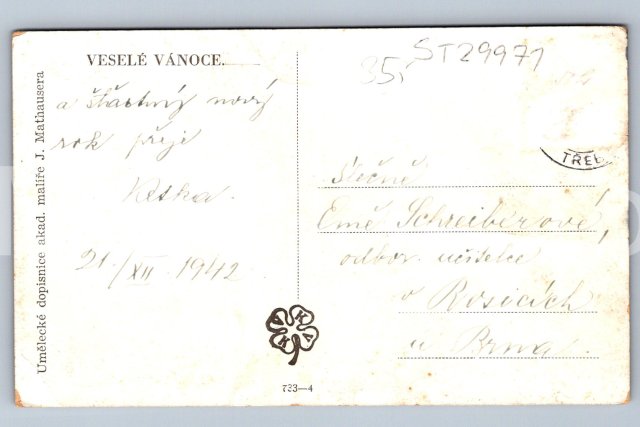 VESELÉ VÁNOCE.
a šťastný nový
rok přeje
21/XII 1942
Umělecké dopisnice akad. malíře J. Mathausera
35,-
ST29971
TŘEB
Slečně
Emě Schreiberové,
odbor. učitelce
v Rosicích
u Brna.
733—4